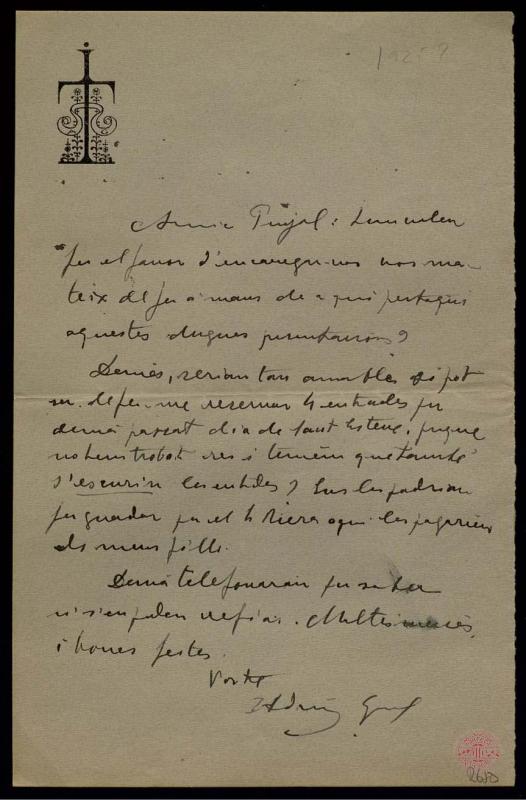 1925?
Amic Pujol: Em voldria
fer el favor d'encarregar-vos vos ma-
teix de fer a mans de a qui pertoqui
aquestes dugues presentacions?
Demés, serian tan amables si pot
ser, de fer-me reservar 4 entrades per
demà passat dia de Sant Esteve, perque
no hem trobat res i temem que també
s'escurin les entrades? Sus les podrian
fer guardar per el 4 Riera o qui les pagarien
els meus fills.
Demà telefonaran per saber
si s'en poden refiar. Moltes mercès,
i bones festes.
Vostre
Adrià Gual
2680